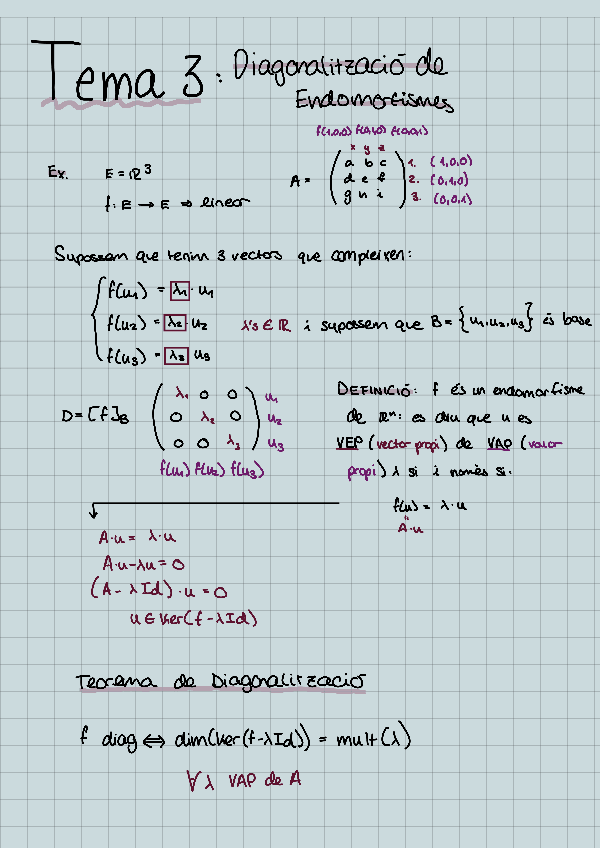 Tema 3: Diagonalització de
Endomorfismes
f(1,0,0) f(0,1,0) f(0,0,1)
x y z
Ex. E = ℝ³
f: E → E ⇒ linear
A = ( a b c ) 1. (1,0,0)
( d e f ) 2. (0,1,0)
( g h i ) 3. (0,0,1)
Suposem que tenim 3 vectors que compleixen:
f(u₁) = λ₁ · u₁
f(u₂) = λ₂ · u₂ λ's ∈ ℝ i suposem que B = {u₁, u₂, u₃} és base
f(u₃) = λ₃ u₃
D = [f]B ( λ₁ 0 0 ) u₁
( 0 λ₂ 0 ) u₂
( 0 0 λ₃ ) u₃
f(u₁) f(u₂) f(u₃)
DEFINICIÓ: f és un endomorfisme
de ℝⁿ: es diu que u es
VEP (vector propi) de VAP (valor
propi) λ si i només si:
f(u) = λ · u
"
A·u
A·u = λ·u
A·u - λu = 0
(A - λ Id) · u = 0
u ∈ Ker(f - λId)
Teorema de Diagonalització
f diag ⇔ dim(Ker(f-λId)) = mult(λ)
∀ λ VAP de A